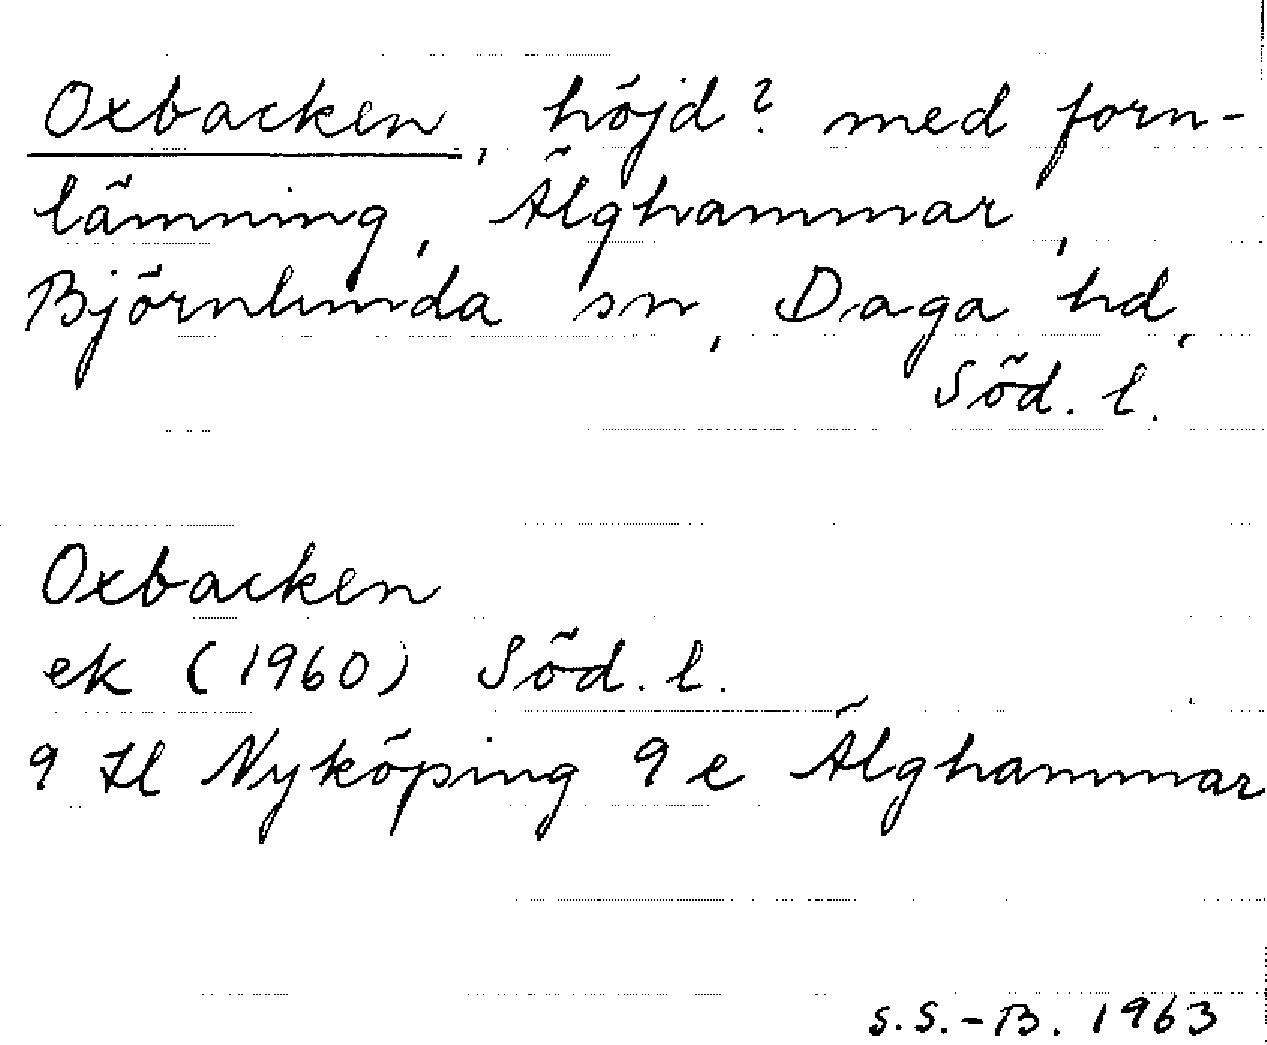 Oxbacken, höjd? med forn-
lämning, Älghammar,
Björnlunda sn, Daga hd,
Söd. l.
Oxbacken
ek (1960) Söd. l.
9 Il Nyköping 9 e Älghammar
S.S.-B. 1963